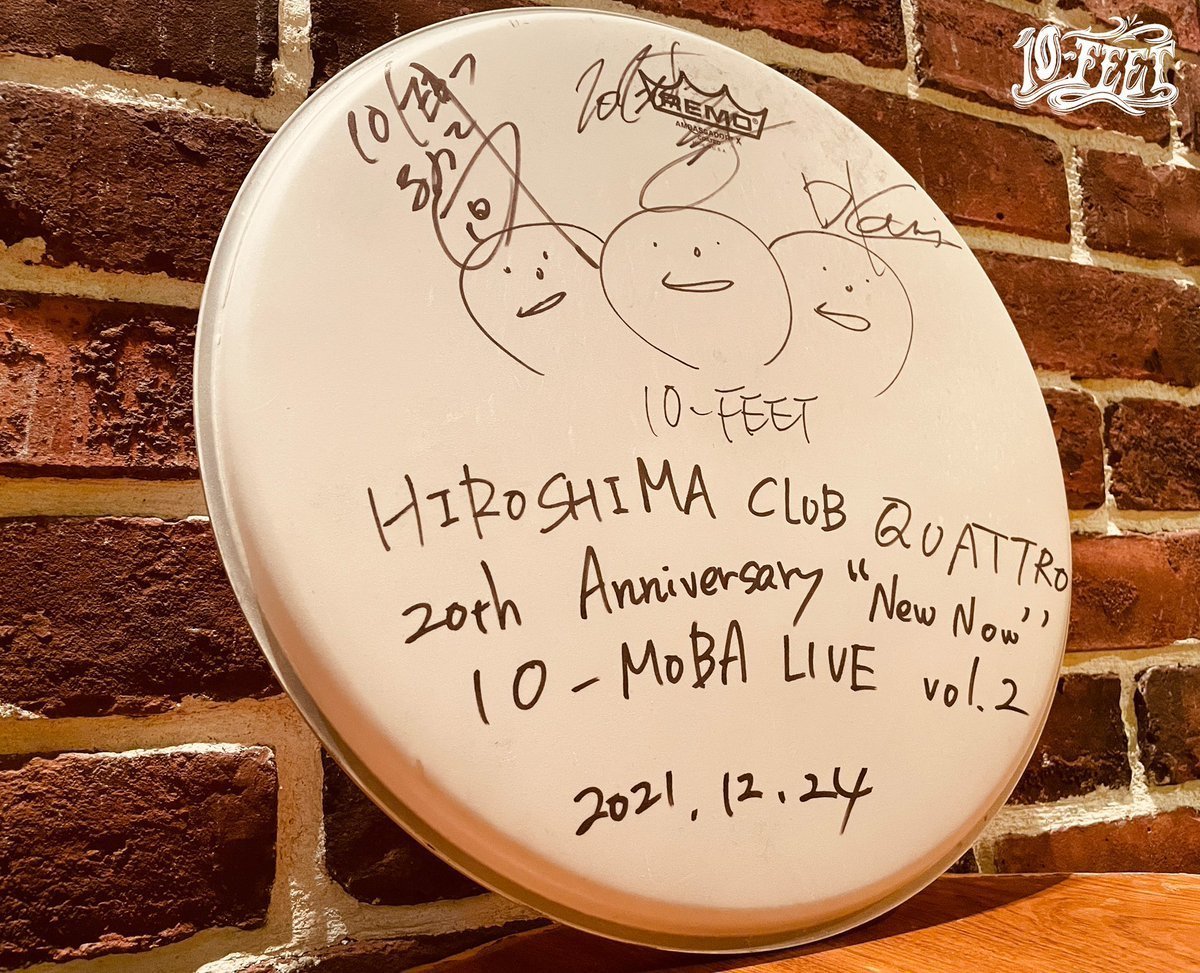 10-FEET
REMO
AMBASSADOR X
10-FEET
HIROSHIMA CLUB QUATTRO
20th Anniversary “New Now”
10-MOBA LIVE vol.2
2021.12.24